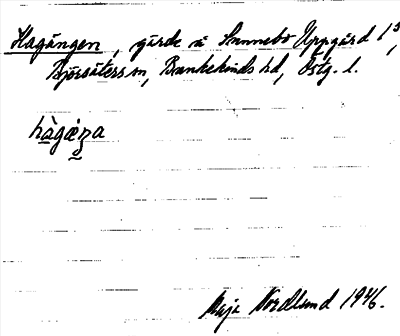 Hagängen, gärde å Sannebo Uppgård 1⁵,
Björsäters sn, Bankekinds hd, Östg. l.
hàgæ̀ŋa
Maja Nordlund 1946.